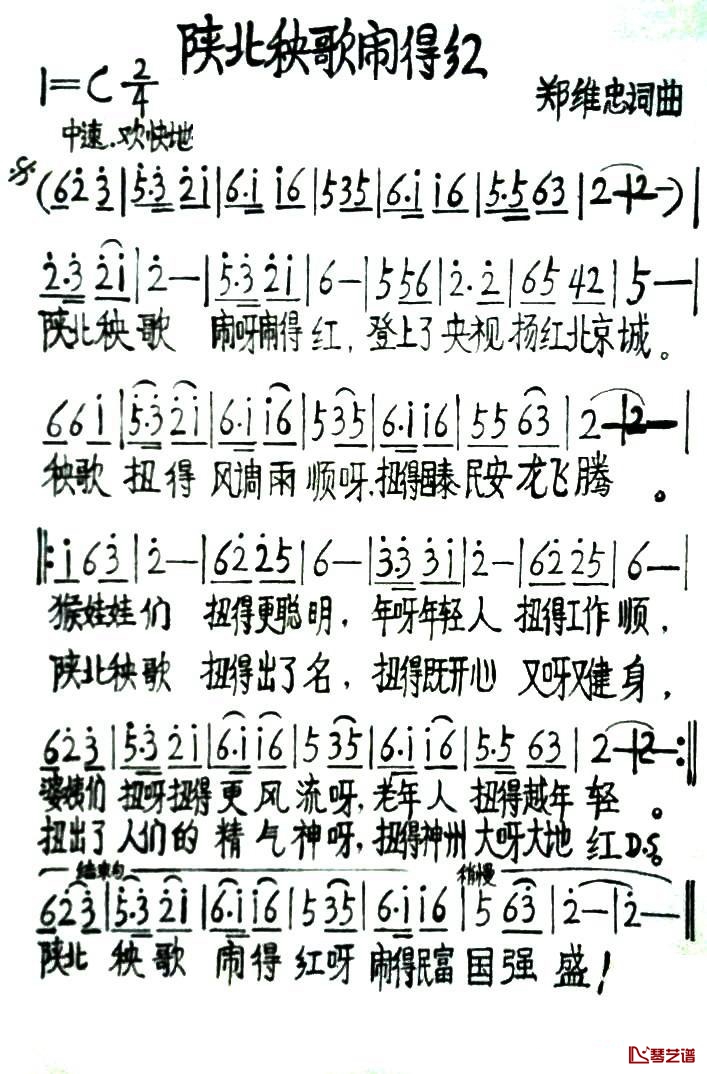 陕北秧歌闹得红
1=C 2/4
郑维忠词曲
中速、欢快地
(6 2̇ 3̇ | 5̇·3̇ 2̇ i | 6·i i 6 | 5 3 5 | 6·i i 6 | 5·5 6 3 | 2— | 2—) |
2̇·3̇ 2̇ i | 2̇— | 5̇·3̇ 2̇ i | 6— | 5 5 6 | 2̇·2̇ | 6 5 4 2 | 5— |
陕北秧歌 闹呀闹得红,登上了央视扬红北京城。
6 6 i | 5̇·3̇ 2̇ i | 6·i i 6 | 5 3 5 | 6·i i 6 | 5 5 6 3 | 2— | 2— |
秧歌扭得风调雨顺呀、扭得国泰民安龙飞腾。
‖: i 6 3̇ | 2̇— | 6 2̇ 2̇ 5 | 6— | 3̇·3̇ 3̇ i | 2̇— | 6 2̇ 2̇ 5 | 6— |
猴娃娃们 扭得更聪明,年呀年轻人 扭得工作顺,
陕北秧歌 扭得出了名,扭得既开心 又呀又健身,
6 2̇ 3̇ | 5̇·3̇ 2̇ i | 6·i i 6 | 5 3 5 | 6·i i 6 | 5·5 6 3 | 2— | 2— :‖
婆姨们扭呀扭得更风流呀,老年人扭得越年轻。
扭出了人们的精气神呀,扭得神州大呀大地红D.S.
结束句 稍慢
6 2̇ 3̇ | 5̇·3̇ 2̇ i | 6·i i 6 | 5 3 5 | 6·i i 6 | 5 6 3̇ | 2̇— | 2̇— ‖
陕北秧歌闹得红呀闹得民富国强盛!
琴艺谱